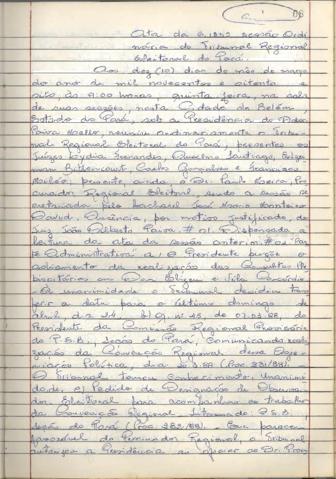 Ata da 6.1852 sessão Ordi
nária do Tribunal Regional
Eleitoral do Pará.
Aos dez (10) dias do mês de março
do ano de mil novecentos e oitenta e
oito, às 9:00 horas, quinta feira, na sala
de suas sessões, nesta Cidade de Belém
Estado do Pará, sob a Presidência do
reuniu ordinariamente o Tribu-
nal Regional Eleitoral do Pará, presentes os
Juízes Lydia Fernandes, Santiago,
Bittencourt, Coelho, Gonçalves e Francisco
presente, ainda, o Dr. Paulo Meira, Pro
curador Regional Eleitoral, sendo a sessão se
cretariada pelo bacharel José Maria Monteiro
David. Ausência, por motivo justificado, do
Juiz João Alberto Paiva. # 01. Dispensada a
leitura da ata da sessão anterior. # 02. Par
te Administrativa: a) O Presidente
adiamento da realização das Consultas Ple
biscitárias em
À unanimidade, o Tribunal decidiu trans
ferir a data para o último domingo de
abril, dia 24. b) Of. nº 45, de 07.03.88, do
Presidente da Comissão Regional Provisória
do P.S.B., Seção do Pará, Comunicando reali
zação da Convenção Regional dessa Agre
miação Política, dia
O Tribunal tomou conhecimento. Unanimi
dade. c) Pedido de designação de Observa
dor Eleitoral para acompanhar os trabalhos
da Convenção Regional do P.S.B.,
Seção do Pará (Proc. 282/88). Com parecer
favorável do Procurador Regional, o Tribunal
autorizou a Presidência a ao Dr. Procu